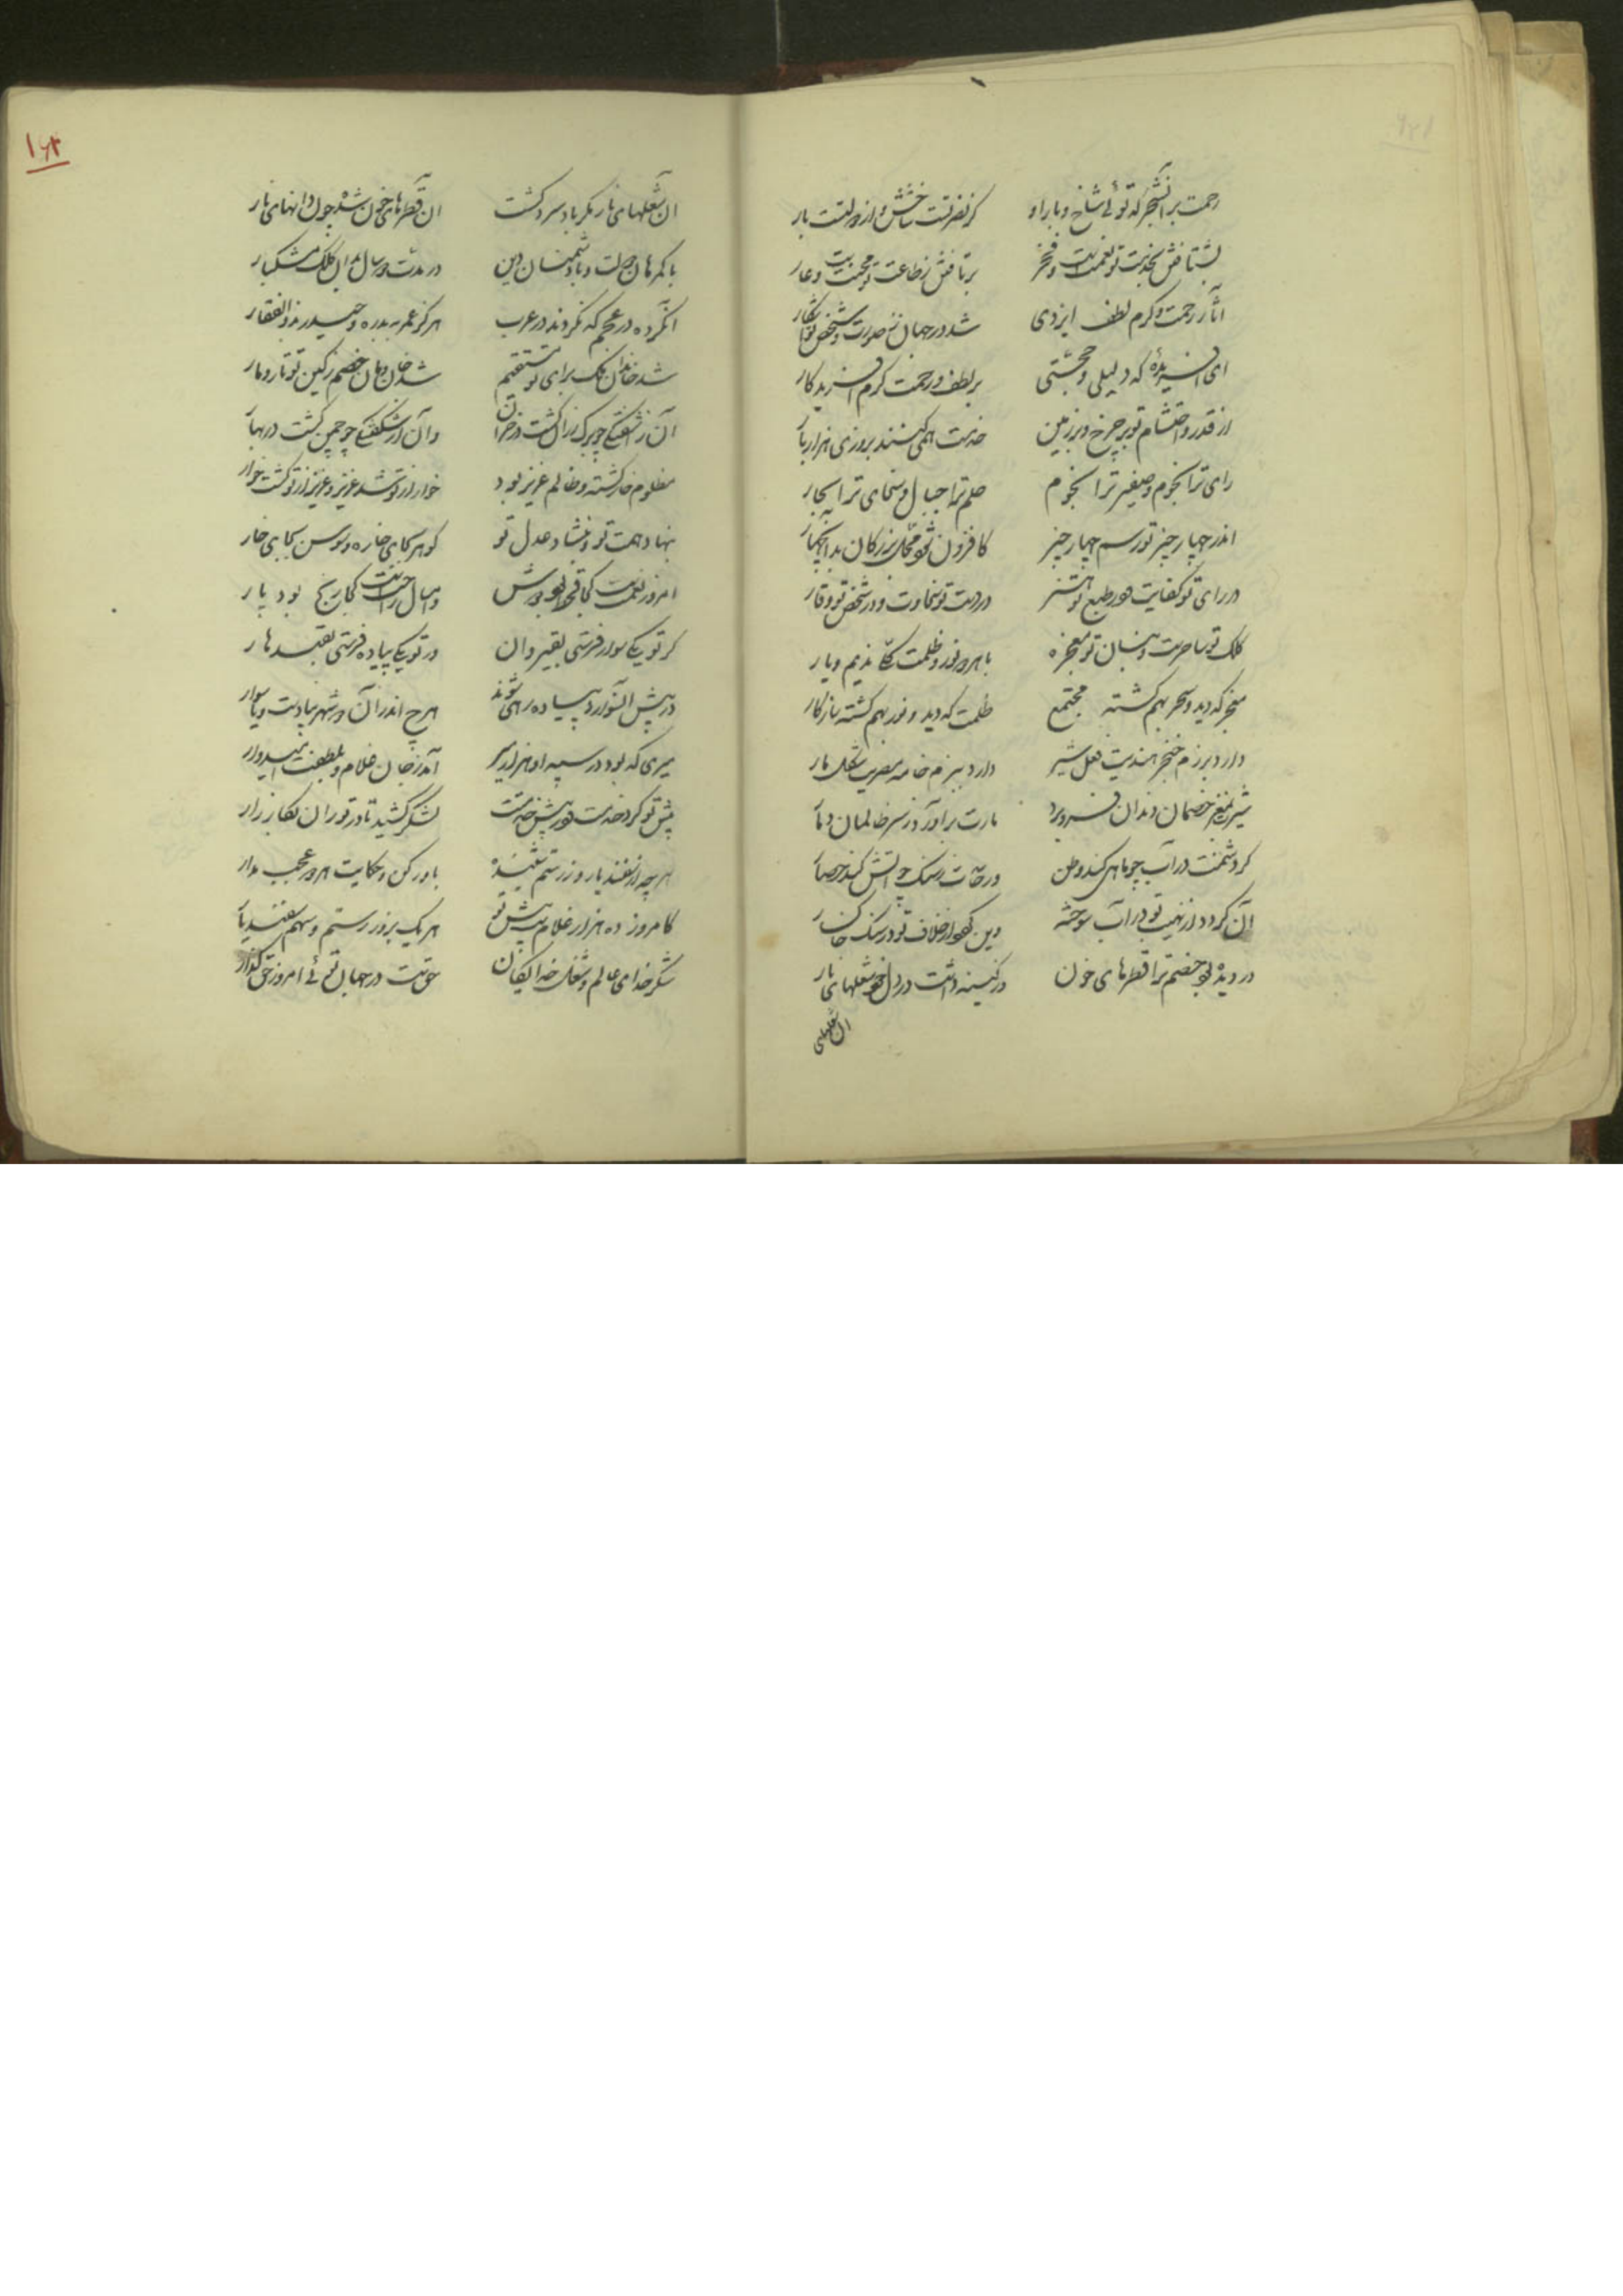 رحمت بر آن شجر که توئی شاخ و بار او
کز نصرتست شاخش و از دولتست بار
بشتافتن بخدمت تو نعمتست و فخر
برتافتن ز طاعت تو محنتست و عار
آثار رحمت و کرم لطف ایزدی
شد در جهان ز صورت و شخص تو آشکار
ای آفریده که دلیلی و حجتی
بر لطف و رحمت و کرم آفریدکار
از قدر و احتشام تو بر چرخ و بر زمین
خدمت همی کنند بروزی هزار بار
رای ترا نجوم و ضمیر ترا نجوم
حلم ترا جبال و سخای ترا بحار
اندر چهار چیز تو رسم چهار چیز
کافزون شد محل بزرکان بدان چهار
در رای تو کفایت و در طبع تو هنر
در دست تو سخاوت و در شخص تو وقار
کلک تو ساحرست و بنان تو معجزه
با هر دو نور و ظلمت ندیم و یار
معجز که دید و سحر بهم کشته مجتمع
ظلمت که دید و نور بهم کشته سازکار
دارد برزم خنجر هندیت فعل شیر
دارد ببزم خامه مصریت شکل مار
شیرت بمغز خصمان دندان فرو برد
مارت برآورد ز سر ظالمان دمار
کر دشمنت در آب چو ماهی کند وطن
ور حاسدت بسنک چو آتش کند حصار
آن کردد از نهیب تو در آب سوخته
وین از خلاف تو در سنک خاکسار
در دیده بود خصم ترا قطرهای خون
در کینه داشت در دل خود شعلهای نار
آن شعلهای
۱۶۲
آن شعلهای نار مکر باد سرد کشت
آن قطرهای خون شده چون دانهای نار
با کمرهان دولت و با دشمنان دین
در مدت دو سال بدان کلک مشکبار
آن کرده در عجم که نکردند در عرب
هرکز عمر بدره و حیدر بذوالفقار
شد خاندان ملک برای تو مستقیم
شد خان و مان خصم ز کین تو تار و مار
آن ز آشفتکی چو برک رزان کشت در خزان
وآن از شکفتکی چو چمن کشت در بهار
مظلوم خار کشته و ظالم عزیز بود
خوار از تو شد عزیز و عزیز از تو کشت خوار
بنهاد همت تو و بنشاند عدل تو
کوهر بجای خاره و سوسن بجای خار
امروز نعمتست کجا قحط بود
و امسال راحتست کجا رنج بود پار
کر تو یکی سوار فرستی بقیروان
ور تو یکی پیاده فرستی بقندهار
در پیش آن سوار پیاده رهی شوند
هرچ اندر آن دو شهر پیادست و یا سوار
میری که بود در سپه او هزار میر
آمد ز جان غلام و بطبعت امیدوار
پیش تو کرد خدمت و در پیش خدمتت
لشکر کشید تا در توران بکارزار
هرچه از اسفندیار و ز رستم شنیده
باور کن و حکایت هر دو عجب مدار
کامروز ده هزار غلام پیش تو
هر یک بزور رستم و سهم سفندیار
شکر خدای عالم و شغل خدایکان
حقست در جهان توئی امروز حق‌کذار